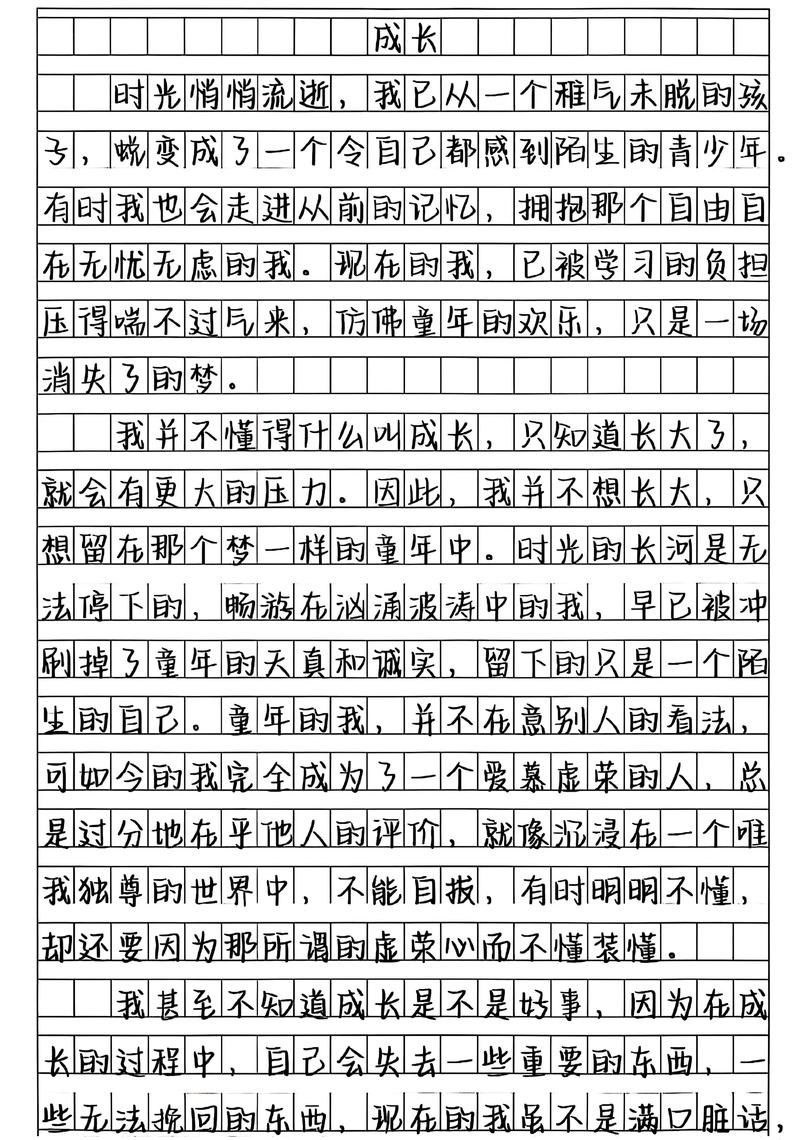 成长
时光悄悄流逝，我已从一个稚气未脱的孩
子，蜕变成了一个令自己都感到陌生的青少年。
有时我也会走进从前的记忆，拥抱那个自由自
在无忧无虑的我。现在的我，已被学习的负担
压得喘不过气来，仿佛童年的欢乐，只是一场
消失了的梦。
我并不懂得什么叫成长，只知道长大了，
就会有更大的压力。因此，我并不想长大，只
想留在那个梦一样的童年中。时光的长河是无
法停下的，畅游在汹涌波涛中的我，早已被冲
刷掉了童年的天真和诚实，留下的只是一个陌
生的自己。童年的我，并不在意别人的看法，
可如今的我完全成为了一个爱慕虚荣的人，总
是过分地在乎他人的评价，就像沉浸在一个唯
我独尊的世界中，不能自拔，有时明明不懂，
却还要因为那所谓的虚荣心而不懂装懂。
我甚至不知道成长是不是好事，因为在成
长的过程中，自己会失去一些重要的东西，一
些无法挽回的东西，现在的我虽不是满口脏话，